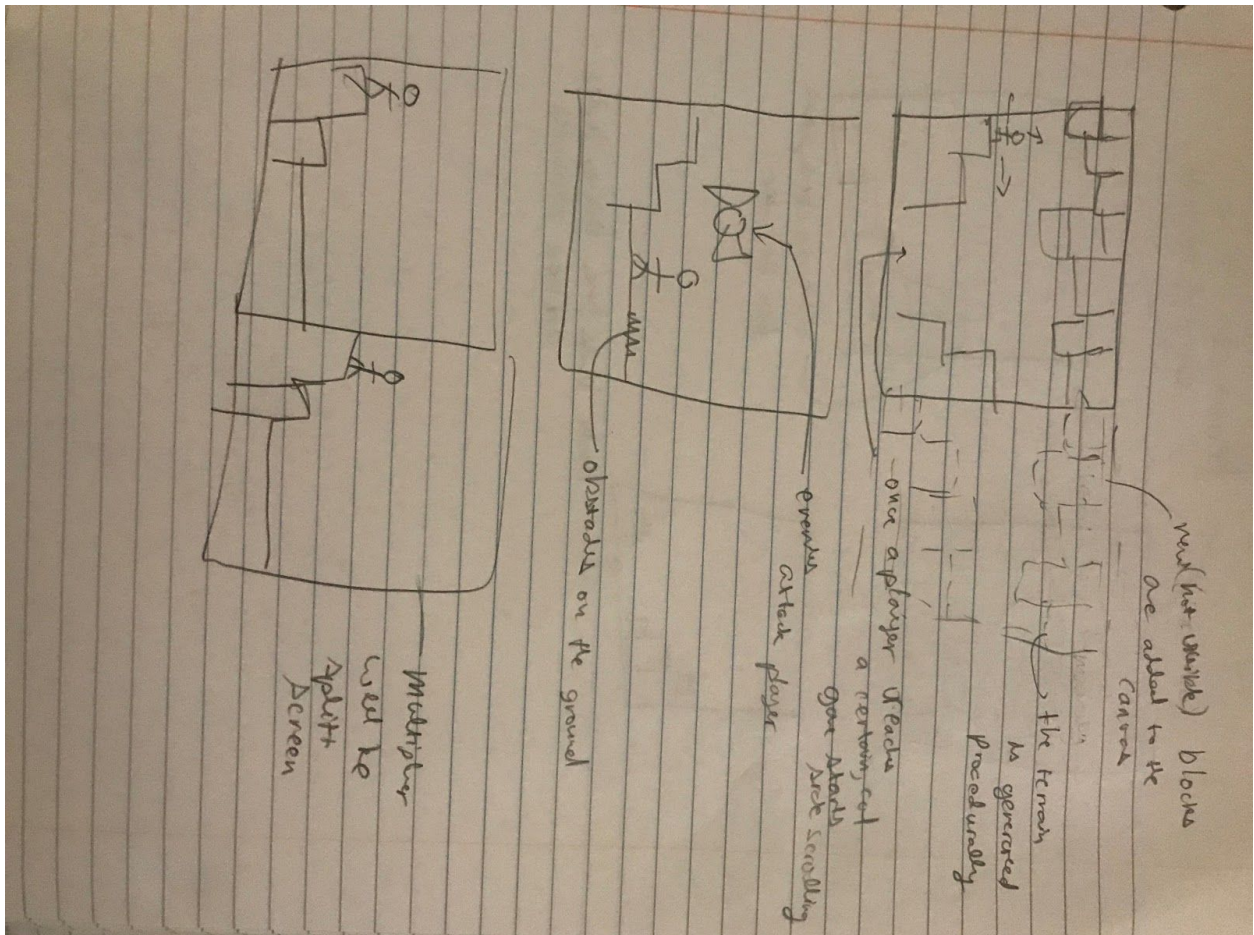 new (not visible) blocks
are added to the
canvas
the terrain
is generated
procedurally
- once a player reaches
a certain col
game starts
side scrolling
enemies
attack player
obstacles on the ground
multiplayer
will be
split
screen